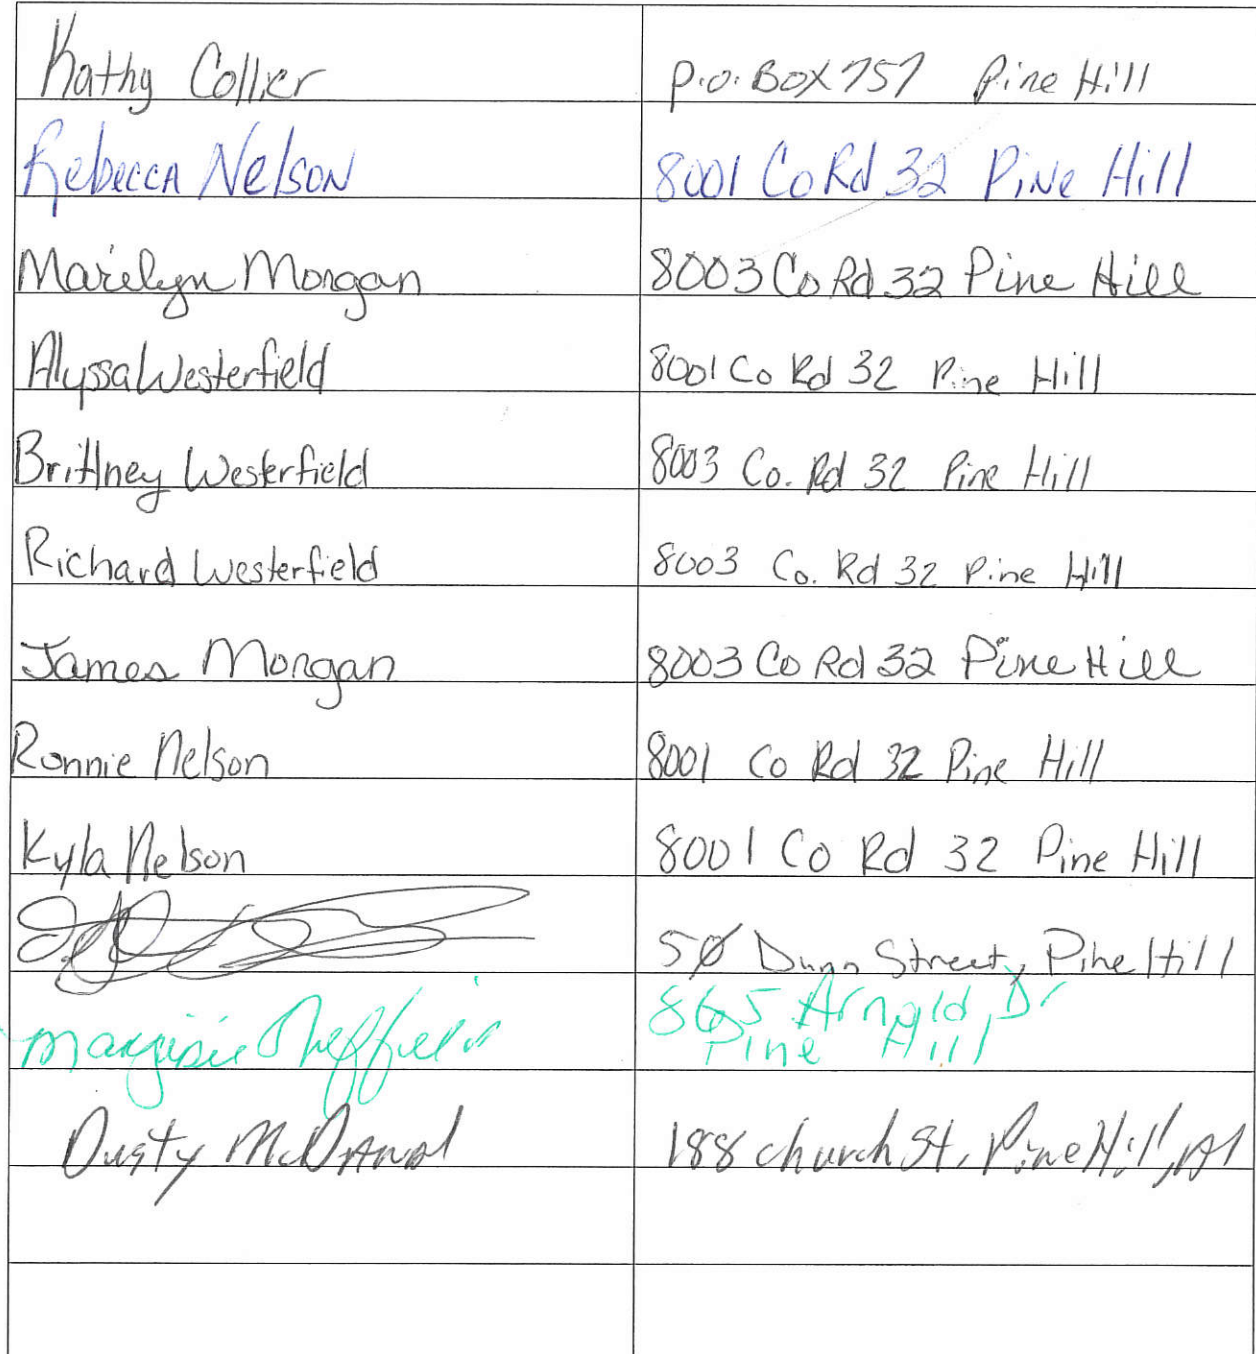 Kathy Collier P.O. BOX 757 Pine Hill
Rebecca Nelson 8001 Co Rd 32 Pine Hill
Marilyn Morgan 8003 Co Rd 32 Pine Hill
Alyssa Westerfield 8001 Co Rd 32 Pine Hill
Brittney Westerfield 8003 Co. Rd 32 Pine Hill
Richard Westerfield 8003 Co. Rd 32 Pine Hill
James Morgan 8003 Co Rd 32 Pine Hill
Ronnie Nelson 8001 Co Rd 32 Pine Hill
Kyla Nelson 8001 Co Rd 32 Pine Hill
50 Dunn Street, Pine Hill
Sheffield 865 Arnold Dr
Pine Hill
Dusty McDaniel 188 church St, Pine Hill, Al